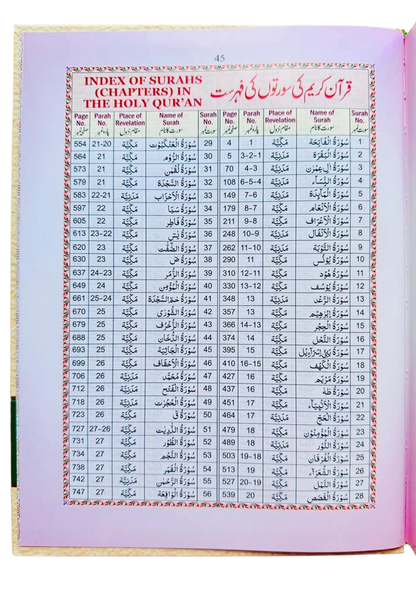 45
INDEX OF SURAHS (CHAPTERS) IN THE HOLY QUR'AN
قرآن کریم کی سورتوں کی فہرست
Page No. Parah No. Place of Revelation Name of Surah Surah No. Page No. Parah No. Place of Revelation Name of Surah Surah No.
صفحہ نمبر پارہ نمبر مقام نزول سورت کا نام سورت نمبر صفحہ نمبر پارہ نمبر مقام نزول سورت کا نام سورت نمبر
554 21-20 مَكِّيَّة سُوْرَةُ الْعَنْكَبُوْت 29 4 1 مَكِّيَّة سُوْرَةُ الْفَاتِحَة 1
564 21 مَكِّيَّة سُوْرَةُ الرُّوْم 30 5 3-2-1 مَدَنِيَّة سُوْرَةُ الْبَقَرَة 2
573 21 مَكِّيَّة سُوْرَةُ لُقْمٰن 31 70 4-3 مَدَنِيَّة سُوْرَةُ اٰلِ عِمْرٰن 3
579 21 مَكِّيَّة سُوْرَةُ السَّجْدَة 32 108 6-5-4 مَدَنِيَّة سُوْرَةُ النِّسَآء 4
583 22-21 مَدَنِيَّة سُوْرَةُ الْاَحْزَاب 33 149 7-6 مَدَنِيَّة سُوْرَةُ الْمَآئِدَة 5
597 22 مَكِّيَّة سُوْرَةُ سَبَا 34 178 8-7 مَكِّيَّة سُوْرَةُ الْاَنْعَام 6
605 22 مَكِّيَّة سُوْرَةُ فَاطِر 35 211 9-8 مَكِّيَّة سُوْرَةُ الْاَعْرَاف 7
613 23-22 مَكِّيَّة سُوْرَةُ يٰسٓ 36 248 10-9 مَدَنِيَّة سُوْرَةُ الْاَنْفَال 8
623 23 مَكِّيَّة سُوْرَةُ الصّٰٓفّٰت 37 262 11-10 مَدَنِيَّة سُوْرَةُ التَّوْبَة 9
630 23 مَكِّيَّة سُوْرَةُ صٓ 38 290 11 مَكِّيَّة سُوْرَةُ يُوْنُس 10
637 24-23 مَكِّيَّة سُوْرَةُ الزُّمَر 39 310 12-11 مَكِّيَّة سُوْرَةُ هُوْد 11
649 24 مَكِّيَّة سُوْرَةُ الْمُؤْمِن 40 330 13-12 مَكِّيَّة سُوْرَةُ يُوْسُف 12
661 25-24 مَكِّيَّة سُوْرَةُ حٰمٓ السَّجْدَة 41 348 13 مَدَنِيَّة سُوْرَةُ الرَّعْد 13
670 25 مَكِّيَّة سُوْرَةُ الشُّوْرٰى 42 357 13 مَكِّيَّة سُوْرَةُ اِبْرٰهِيْم 14
679 25 مَكِّيَّة سُوْرَةُ الزُّخْرُف 43 366 14-13 مَكِّيَّة سُوْرَةُ الْحِجْر 15
688 25 مَكِّيَّة سُوْرَةُ الدُّخَان 44 374 14 مَكِّيَّة سُوْرَةُ النَّحْل 16
693 25 مَكِّيَّة سُوْرَةُ الْجَاثِيَة 45 395 15 مَكِّيَّة سُوْرَةُ بَنِيْٓ اِسْرَآءِيْل 17
699 26 مَكِّيَّة سُوْرَةُ الْاَحْقَاف 46 410 16-15 مَكِّيَّة سُوْرَةُ الْكَهْف 18
706 26 مَدَنِيَّة سُوْرَةُ مُحَمَّد 47 427 16 مَكِّيَّة سُوْرَةُ مَرْيَم 19
712 26 مَدَنِيَّة سُوْرَةُ الْفَتْح 48 437 16 مَكِّيَّة سُوْرَةُ طٰهٰ 20
718 26 مَدَنِيَّة سُوْرَةُ الْحُجُرٰت 49 451 17 مَكِّيَّة سُوْرَةُ الْاَنْبِيَآء 21
723 26 مَكِّيَّة سُوْرَةُ قٓ 50 464 17 مَدَنِيَّة سُوْرَةُ الْحَجّ 22
727 27-26 مَكِّيَّة سُوْرَةُ الذّٰرِيٰت 51 479 18 مَكِّيَّة سُوْرَةُ الْمُؤْمِنُوْن 23
731 27 مَكِّيَّة سُوْرَةُ الطُّوْر 52 489 18 مَدَنِيَّة سُوْرَةُ النُّوْر 24
734 27 مَكِّيَّة سُوْرَةُ النَّجْم 53 503 19-18 مَكِّيَّة سُوْرَةُ الْفُرْقَان 25
738 27 مَكِّيَّة سُوْرَةُ الْقَمَر 54 513 19 مَكِّيَّة سُوْرَةُ الشُّعَرَآء 26
742 27 مَدَنِيَّة سُوْرَةُ الرَّحْمٰن 55 527 20-19 مَكِّيَّة سُوْرَةُ النَّمْل 27
747 27 مَكِّيَّة سُوْرَةُ الْوَاقِعَة 56 539 20 مَكِّيَّة سُوْرَةُ الْقَصَص 28